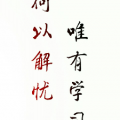 何以解忧
唯有学习